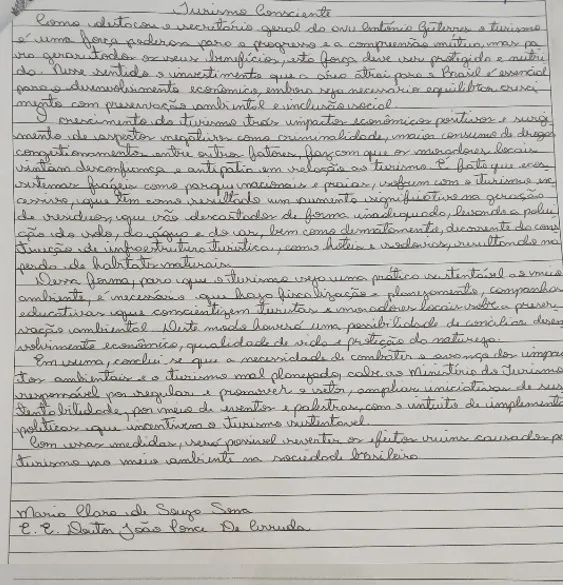 Turismo Consciente
Como destacou o secretário geral do onu António Guterres o turismo
é uma força poderosa para o progresso e a compreensão mútua, mas pa
ra gerar todos os seus benefícios, esta força deve ser protegida e nutri
da. Nesse sentido o investimento que a área atrai para o Brasil é essencial
para o desenvolvimento econômico, embora seja necessário equilibrar cresci
mento com preservação ambiental e inclusão social.
O crescimento do turismo traz impactos econômicos positivos e surgi
mento de aspectos negativos como criminalidade, maior consumo de drogas
congestionamento entre outros fatores, faz com que os moradores locais
sintam desconfiança e antipatia em relação ao turismo. É fato que ecos
sistemas frágeis como parques nacionais e praias, sofrem com o turismo ex
cessivo, que tem como resultado um aumento significativo na geração
de resíduos, que são descartados de forma inadequada, levando a polui
ção do solo, da água e do ar, bem como desmatamento, decorrente da cons
trução de infraestrutura turística, como hotéis e rodovias, resultando na
perda de habitats naturais.
Dessa forma, para que o turismo seja uma prática sustentável ao meio
ambiente, é necessário que haja fiscalização e planejamento, companhas
educativas que conscientizem turistas e moradores locais sobre a preser
vação ambiental. Deste modo haverá uma possibilidade de conciliar desen
volvimento econômico, qualidade de vida e proteção da natureza.
Em suma, conclui-se que a necessidade de combater o avanço dos impac
tos ambientais e o turismo mal planejado, cabe ao Ministério do Turismo
responsável por regular e promover o setor, ampliar iniciativas de sus
tentabilidade, por meio de eventos e palestras, com o intuito de implementar
políticas que incentivem o turismo sustentável.
Com essas medidas, será possível reverter os efeitos ruins causados pe
turismo no meio ambiente na sociedade brasileira
Maria Clara de Souza Sena
E. E. Doutor João Ponce De Arruda